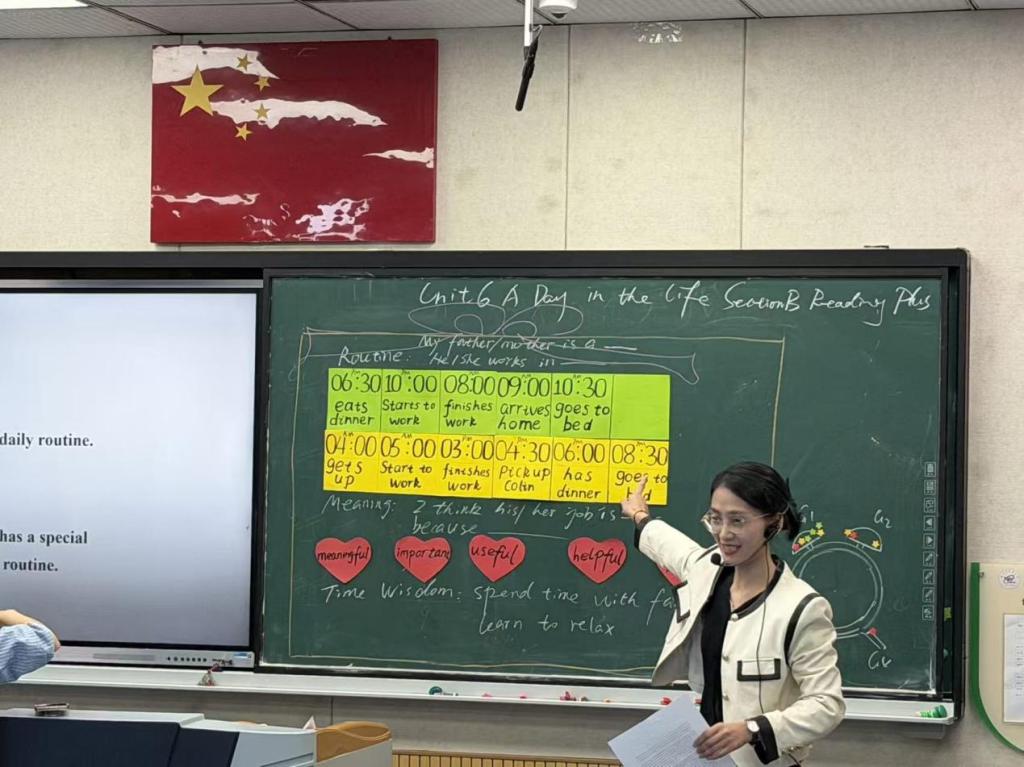 Unit 6 A Day in the Life Section B Reading Plus
My father/mother is a
Routine: He/she works in
PM PM AM AM AM
06:30 10:00 08:00 09:00 10:30
eats dinner Starts to work finishes work arrives home goes to bed
AM AM PM PM PM PM
04:00 05:00 03:00 04:30 06:00 08:30
gets up Start to work finishes work Pick up Colin has dinner goes to
Meaning: I think his/her job is
because
meaningful important useful helpful
Time Wisdom: spend time with
learn to relax
G1 G2
daily routine.
has a special
routine.